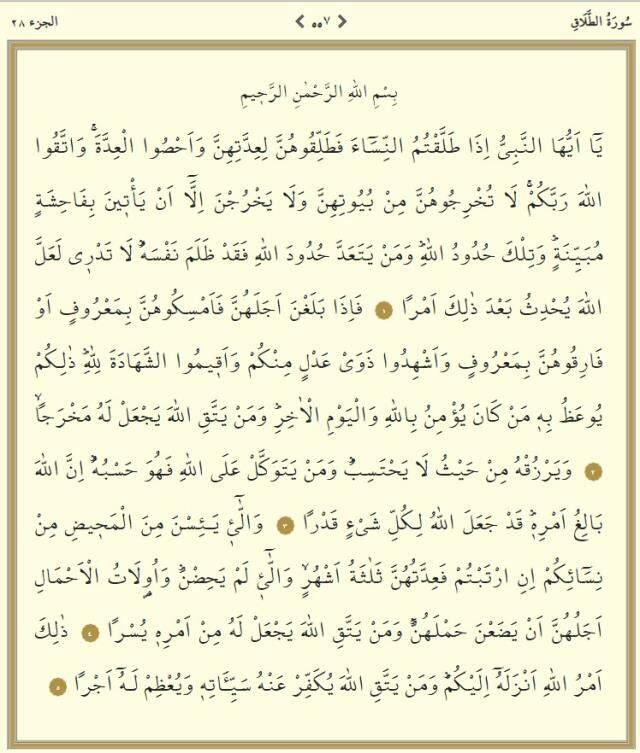 سُورَةُ الطَّلَاقِ ٥٥٧ الجزء ٢٨
بِسْمِ اللهِ الرَّحْمٰنِ الرَّحٖيمِ
يَٓا اَيُّهَا النَّبِيُّ اِذَا طَلَّقْتُمُ النِّسَٓاءَ فَطَلِّقُوهُنَّ لِعِدَّتِهِنَّ وَاَحْصُوا الْعِدَّةَۚ وَاتَّقُوا
اللهَ رَبَّكُمْۚ لَا تُخْرِجُوهُنَّ مِنْ بُيُوتِهِنَّ وَلَا يَخْرُجْنَ اِلَّٓا اَنْ يَأْتٖينَ بِفَاحِشَةٍ
مُبَيِّنَةٍؕ وَتِلْكَ حُدُودُ اللهِؕ وَمَنْ يَتَعَدَّ حُدُودَ اللهِ فَقَدْ ظَلَمَ نَفْسَهُؕ لَا تَدْرٖى لَعَلَّ
اللهَ يُحْدِثُ بَعْدَ ذٰلِكَ اَمْرًا ١ فَاِذَا بَلَغْنَ اَجَلَهُنَّ فَاَمْسِكُوهُنَّ بِمَعْرُوفٍ اَوْ
فَارِقُوهُنَّ بِمَعْرُوفٍ وَاَشْهِدُوا ذَوَىْ عَدْلٍ مِنْكُمْ وَاَقٖيمُوا الشَّهَادَةَ لِلّٰهِؕ ذٰلِكُمْ
يُوعَظُ بِهٖ مَنْ كَانَ يُؤْمِنُ بِاللهِ وَالْيَوْمِ الْاٰخِرِؕ وَمَنْ يَتَّقِ اللهَ يَجْعَلْ لَهُ مَخْرَجًاۙ
٢ وَيَرْزُقْهُ مِنْ حَيْثُ لَا يَحْتَسِبُؕ وَمَنْ يَتَوَكَّلْ عَلَى اللهِ فَهُوَ حَسْبُهُؕ اِنَّ اللهَ
بَالِغُ اَمْرِهٖؕ قَدْ جَعَلَ اللهُ لِكُلِّ شَىْءٍ قَدْرًا ٣ وَالّٰٓـٖٔى يَـئِسْنَ مِنَ الْمَحٖيضِ مِنْ
نِسَٓائِكُمْ اِنِ ارْتَبْتُمْ فَعِدَّتُهُنَّ ثَلٰثَةُ اَشْهُرٍۙ وَالّٰٓـٖٔى لَمْ يَحِضْنَؕ وَاُو۬لَاتُ الْاَحْمَالِ
اَجَلُهُنَّ اَنْ يَضَعْنَ حَمْلَهُنَّؕ وَمَنْ يَتَّقِ اللهَ يَجْعَلْ لَهُ مِنْ اَمْرِهٖ يُسْرًا ٤ ذٰلِكَ
اَمْرُ اللهِ اَنْزَلَهُٓ اِلَيْكُمْؕ وَمَنْ يَتَّقِ اللهَ يُكَفِّرْ عَنْهُ سَيِّـَٔاتِهٖ وَيُعْظِمْ لَهُٓ اَجْرًا ٥